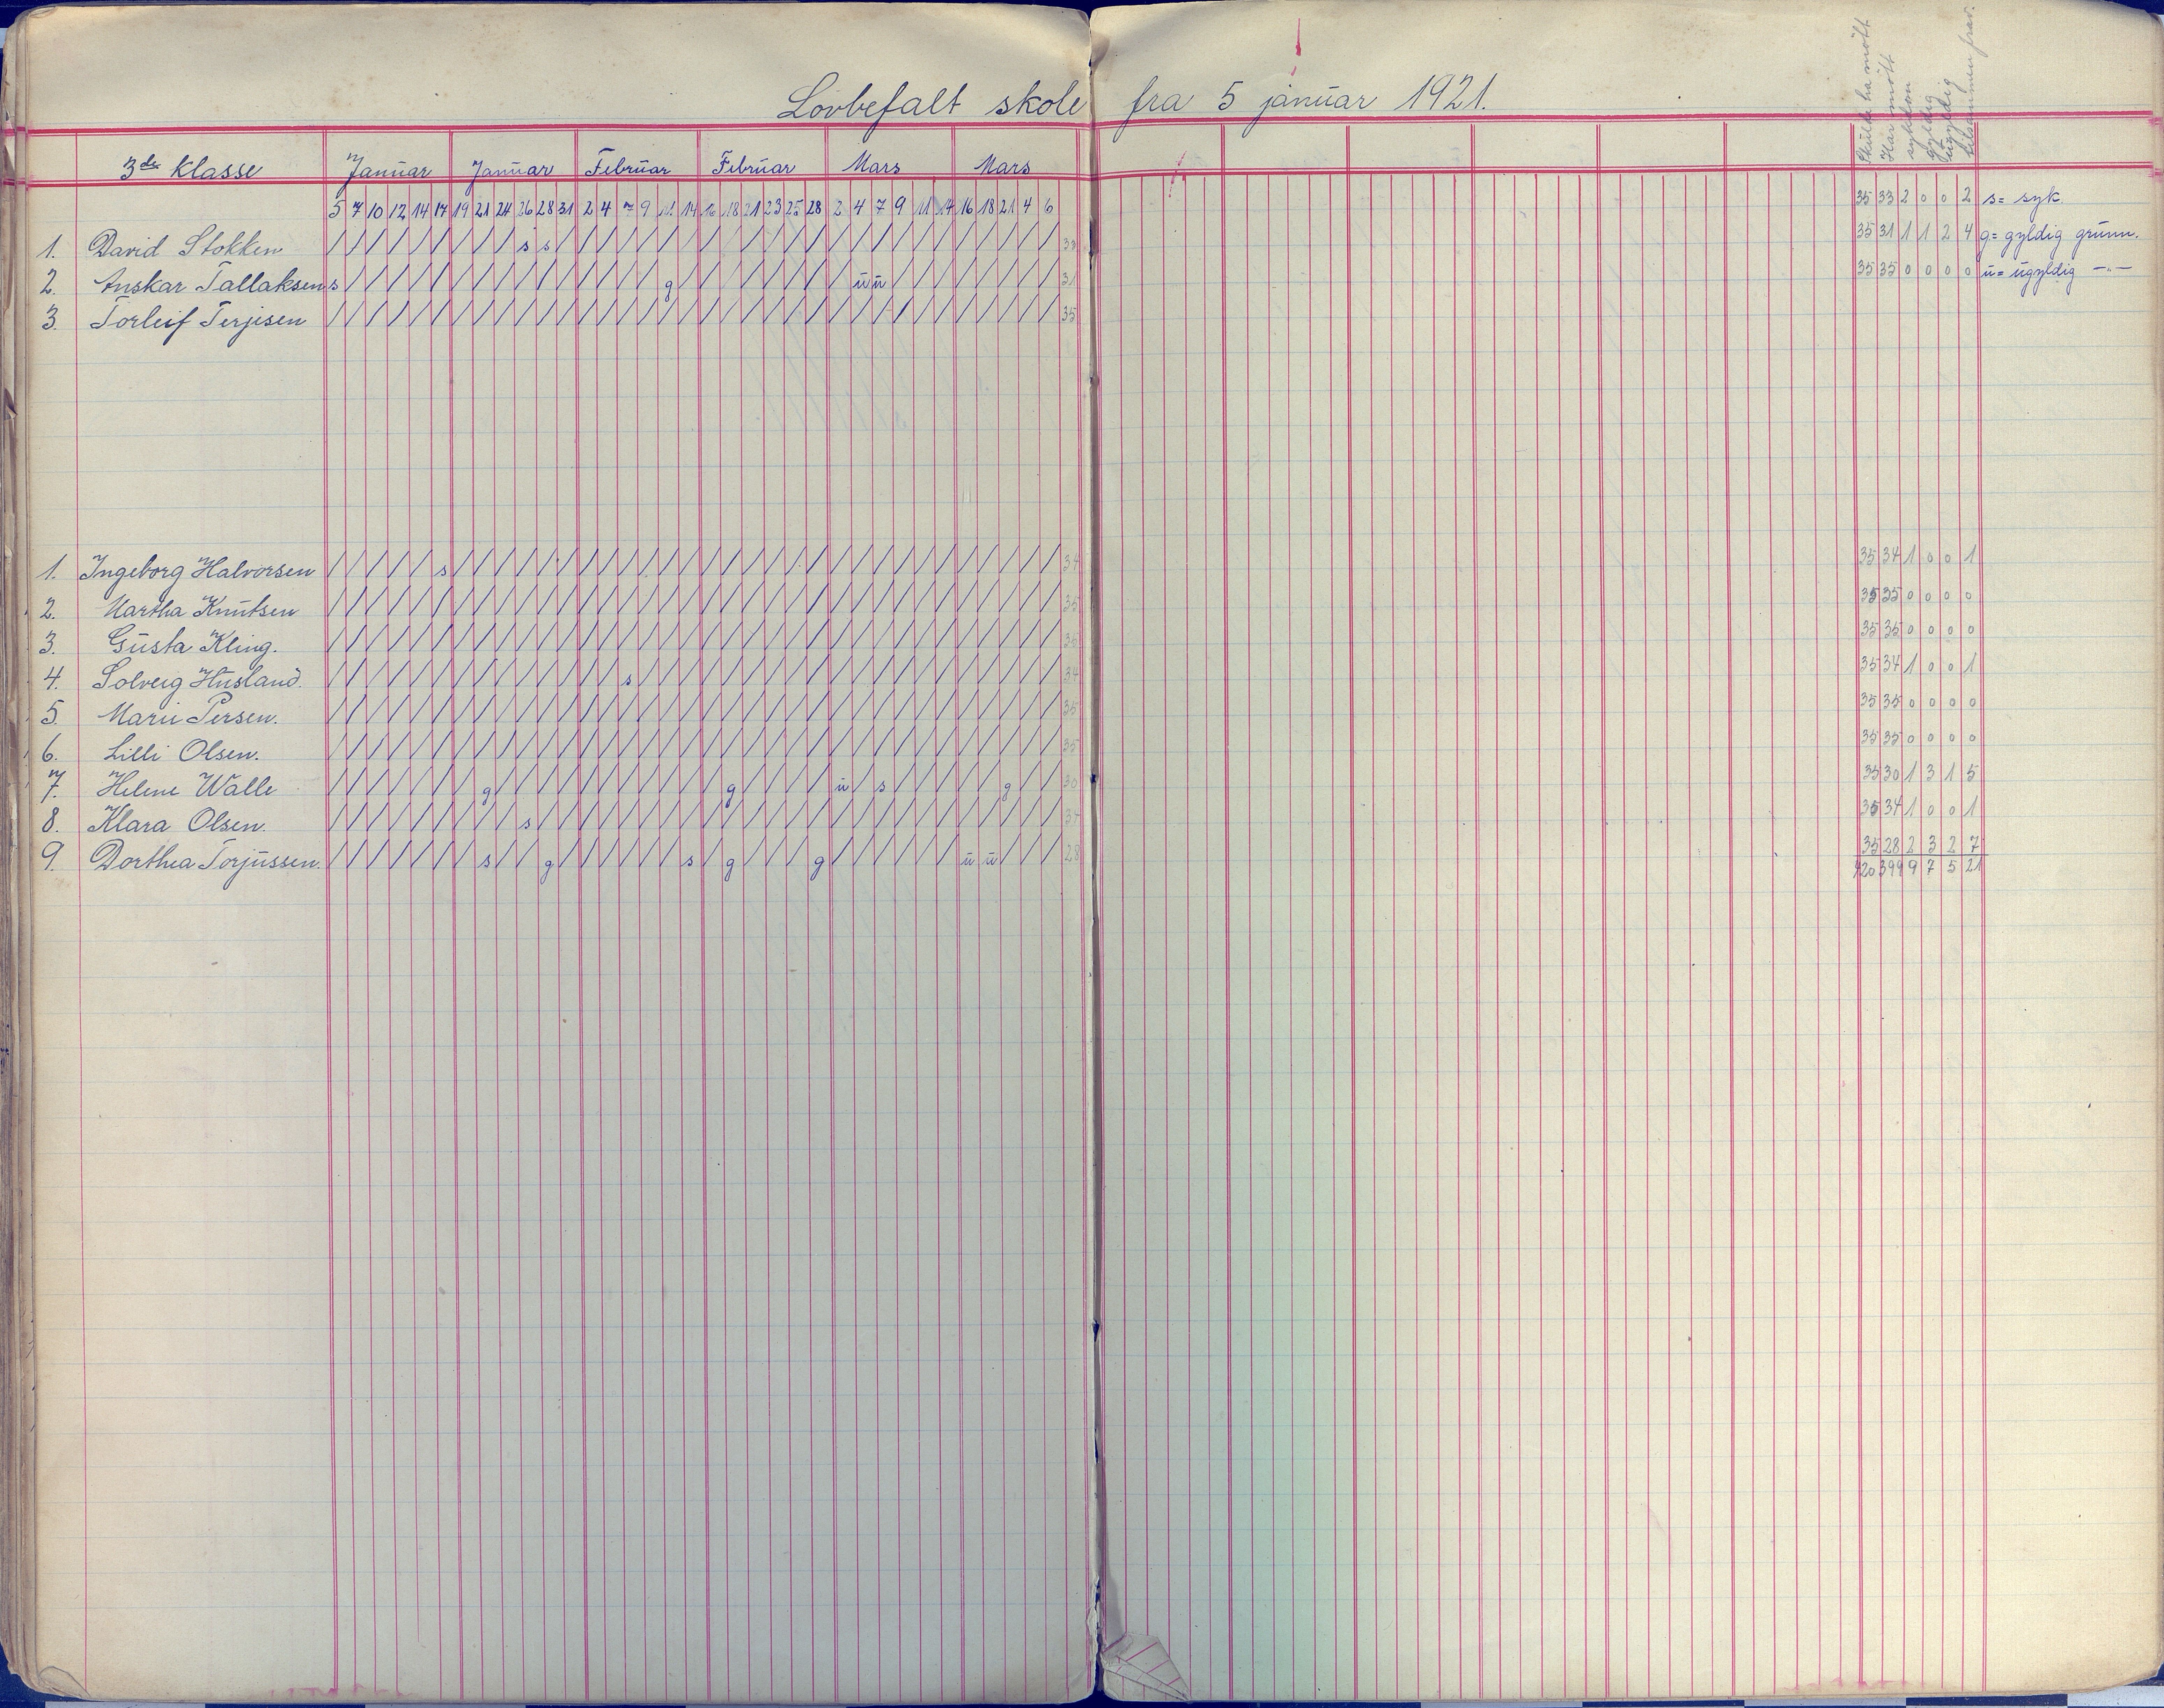 Lovbefalt skole fra 5 januar 1921.
Skulde ha møtt
Har møtt
sykdom
gyldig
ugyldig
tilsammen frav.
3de klasse Januar Januar Februar Februar Mars Mars
5 7 10 12 14 17 19 21 24 26 28 31 2 4 7 9 11 14 16 18 21 23 25 28 2 4 7 9 11 14 16 18 21 4 6
35 33 2 0 0 2 s = syk.
1. David Stokken / / / / / / / / / s s / / / / / / / / / / / / / / / / / / / / / / / / 33 35 31 1 1 2 4 g = gyldig grunn.
2. Anskar Tallaksen s / / / / / / / / / / / / / / / g / / / / / / / / u u / / / / / / / / 31 35 35 0 0 0 0 u = ugyldig -"-
3. Torleif Terjesen / / / / / / / / / / / / / / / / / / / / / / / / / / / / / / / / / / / 35
1. Ingeborg Halvorsen / / / / / s / / / / / / / / / / / / / / / / / / / / / / / / / / / / / 34 35 34 1 0 0 1
2. Martha Knutsen / / / / / / / / / / / / / / / / / / / / / / / / / / / / / / / / / / / 35 35 35 0 0 0 0
3. Gusta Kling. / / / / / / / / / / / / / / / / / / / / / / / / / / / / / / / / / / / 35 35 35 0 0 0 0
4. Solveig Husland. / / / / / / / / / / / / / / s / / / / / / / / / / / / / / / / / / / / 34 35 34 1 0 0 1
5. Marie Persen. / / / / / / / / / / / / / / / / / / / / / / / / / / / / / / / / / / / 35 35 35 0 0 0 0
6. Lilli Olsen. / / / / / / / / / / / / / / / / / / / / / / / / / / / / / / / / / / / 35 35 35 0 0 0 0
7. Helene Walle / / / / / / / g / / / / / / / / / / / g / / / / u / s / / / / / g / / 30 35 30 1 3 1 5
8. Klara Olsen. / / / / / / / / / s / / / / / / / / / / / / / / / / / / / / / / / / / 34 35 34 1 0 0 1
9. Dorthea Torjussen. / / / / / / / s / / g / / / / / / s / g / / / g / / / / / / u u / / / 28 35 28 2 3 2 7
420 399 9 7 5 21